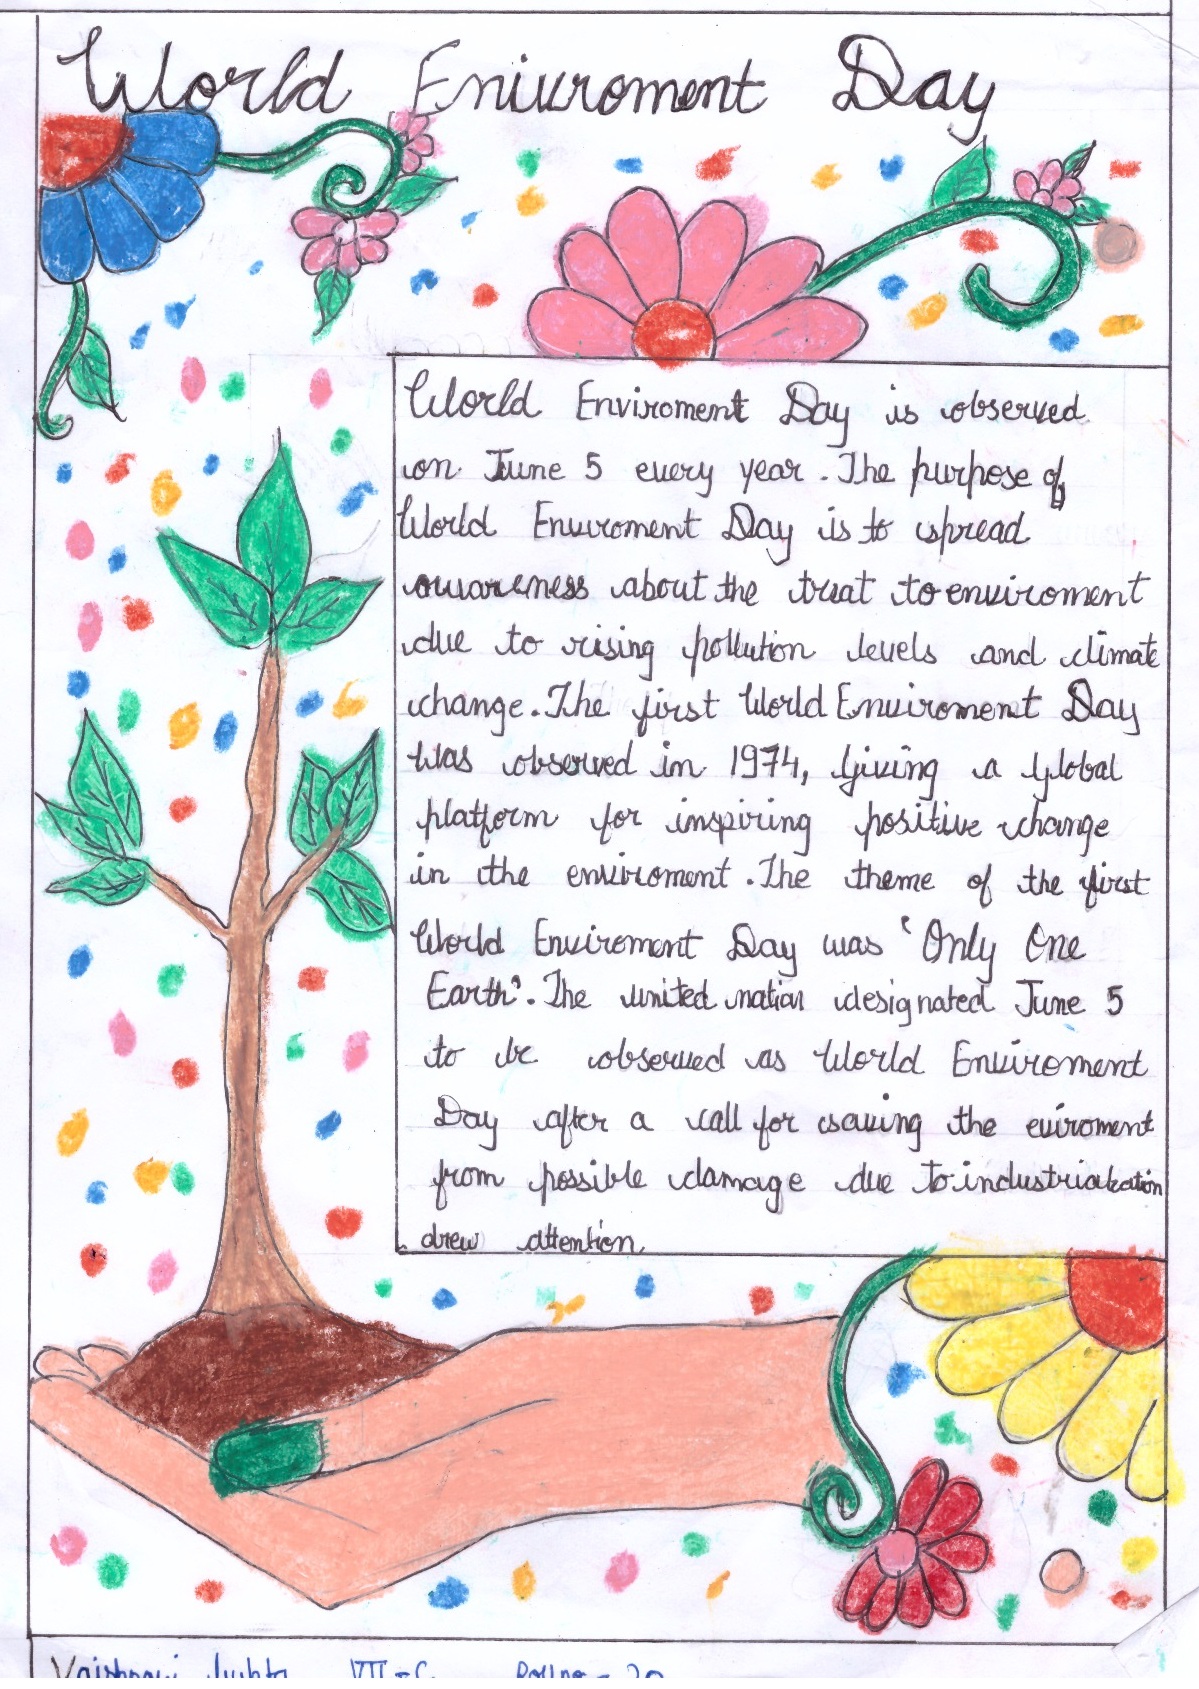 World Eniviroment Day
World Enviroment Day is observed
on June 5 every year. The purpose of
World Enviroment Day is to spread
awareness about the treat to enviroment
due to rising pollution levels and climate
change. The first World Enviroment Day
was observed in 1974, Giving a global
platform for inspiring positive change
in the enviroment. The theme of the first
World Enviroment Day was 'Only One
Earth'. The united nation designated June 5
to be observed as World Enviroment
Day after a call for saving the eviroment
from possible damage due to industrialization
drew attention.
VII - C